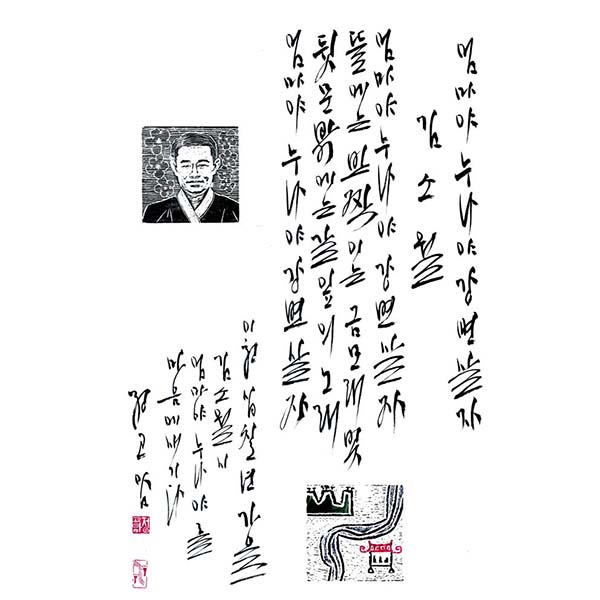 엄마야 누나야 강변 살자
김소월
엄마야 누나야 강변 살자
뜰에는 반짝이는 금모래빛
뒷문 밖에는 갈잎의 노래
엄마야 누나야 강변 살자
이천십칠년 가을
김소월 시
엄마야 누나야를
마음에 새기다
정고암